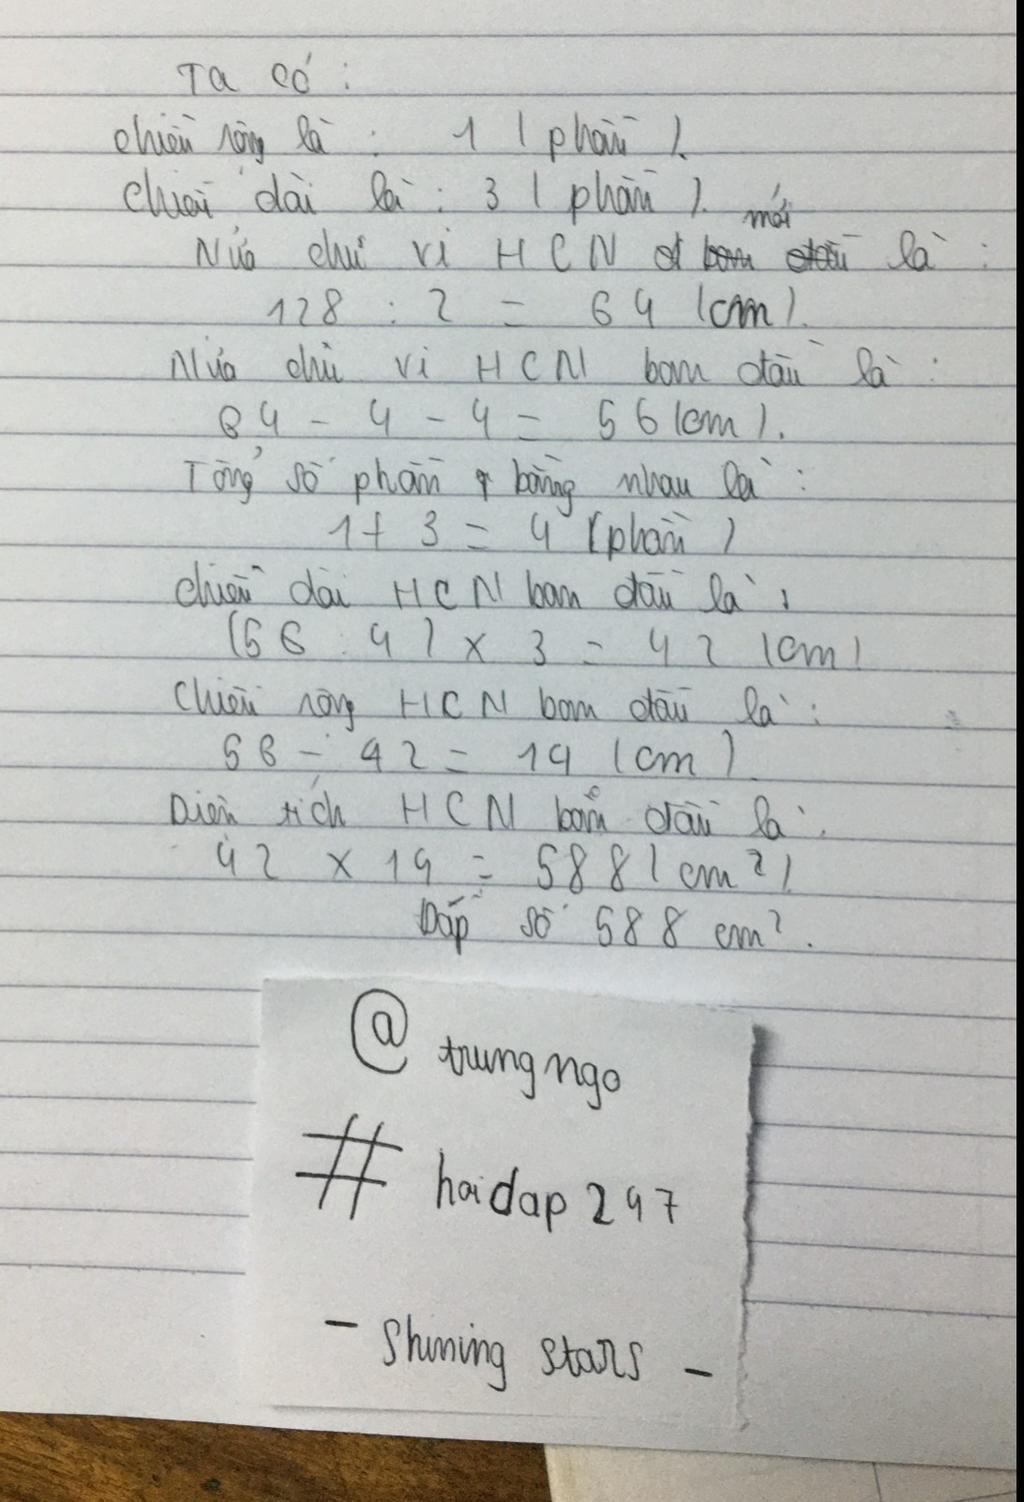 Ta có :
chiều rộng là : 1 ( phần ).
chiều dài là : 3 ( phần ).
mới
Nửa chu vi HCN là :
128 : 2 = 64 (cm).
Nửa chu vi HCN ban đầu là :
64 - 4 - 4 = 56 (cm).
Tổng số phần bằng nhau là :
1 + 3 = 4 (phần )
chiều dài HCN ban đầu là :
(56 : 4) x 3 = 42 (cm)
Chiều rộng HCN ban đầu là :
56 - 42 = 14 (cm).
Diện tích HCN ban đầu là :
42 x 14 = 588 ( cm² )
Đáp số 588 cm².
@ trungngo
# hoidap247
- Shining stars -